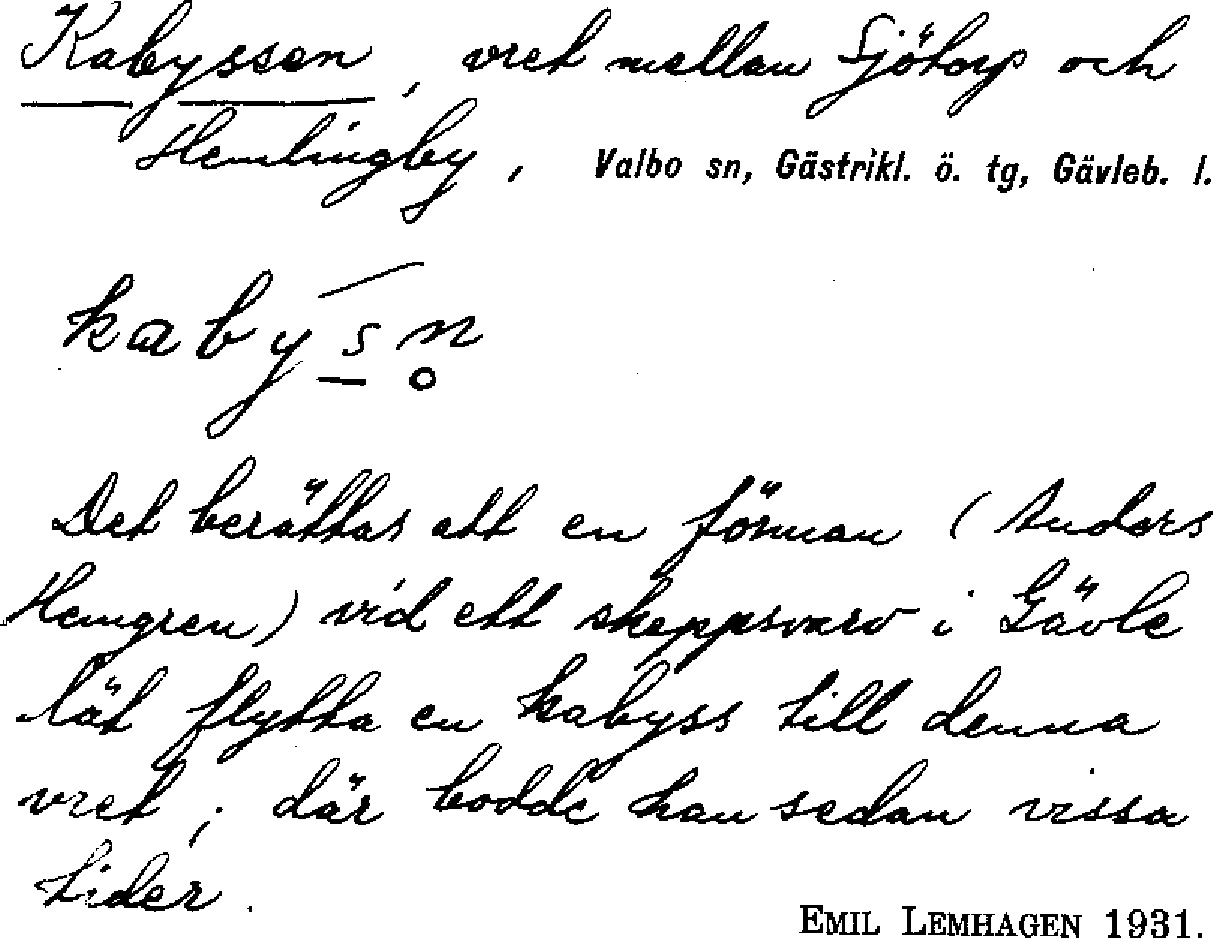 Kabyssen, vret mellan Sjötorp och
Hemlingby, Valbo sn, Gästrikl. ö. tg, Gävleb. l.
kabysn̥
Det berättas att en förman (Anders
Hemgren) vid ett skeppsvarv i Gävle
lät flytta en kabyss till denna
vret; där bodde han sedan vissa
tider.
EMIL LEMHAGEN 1931.